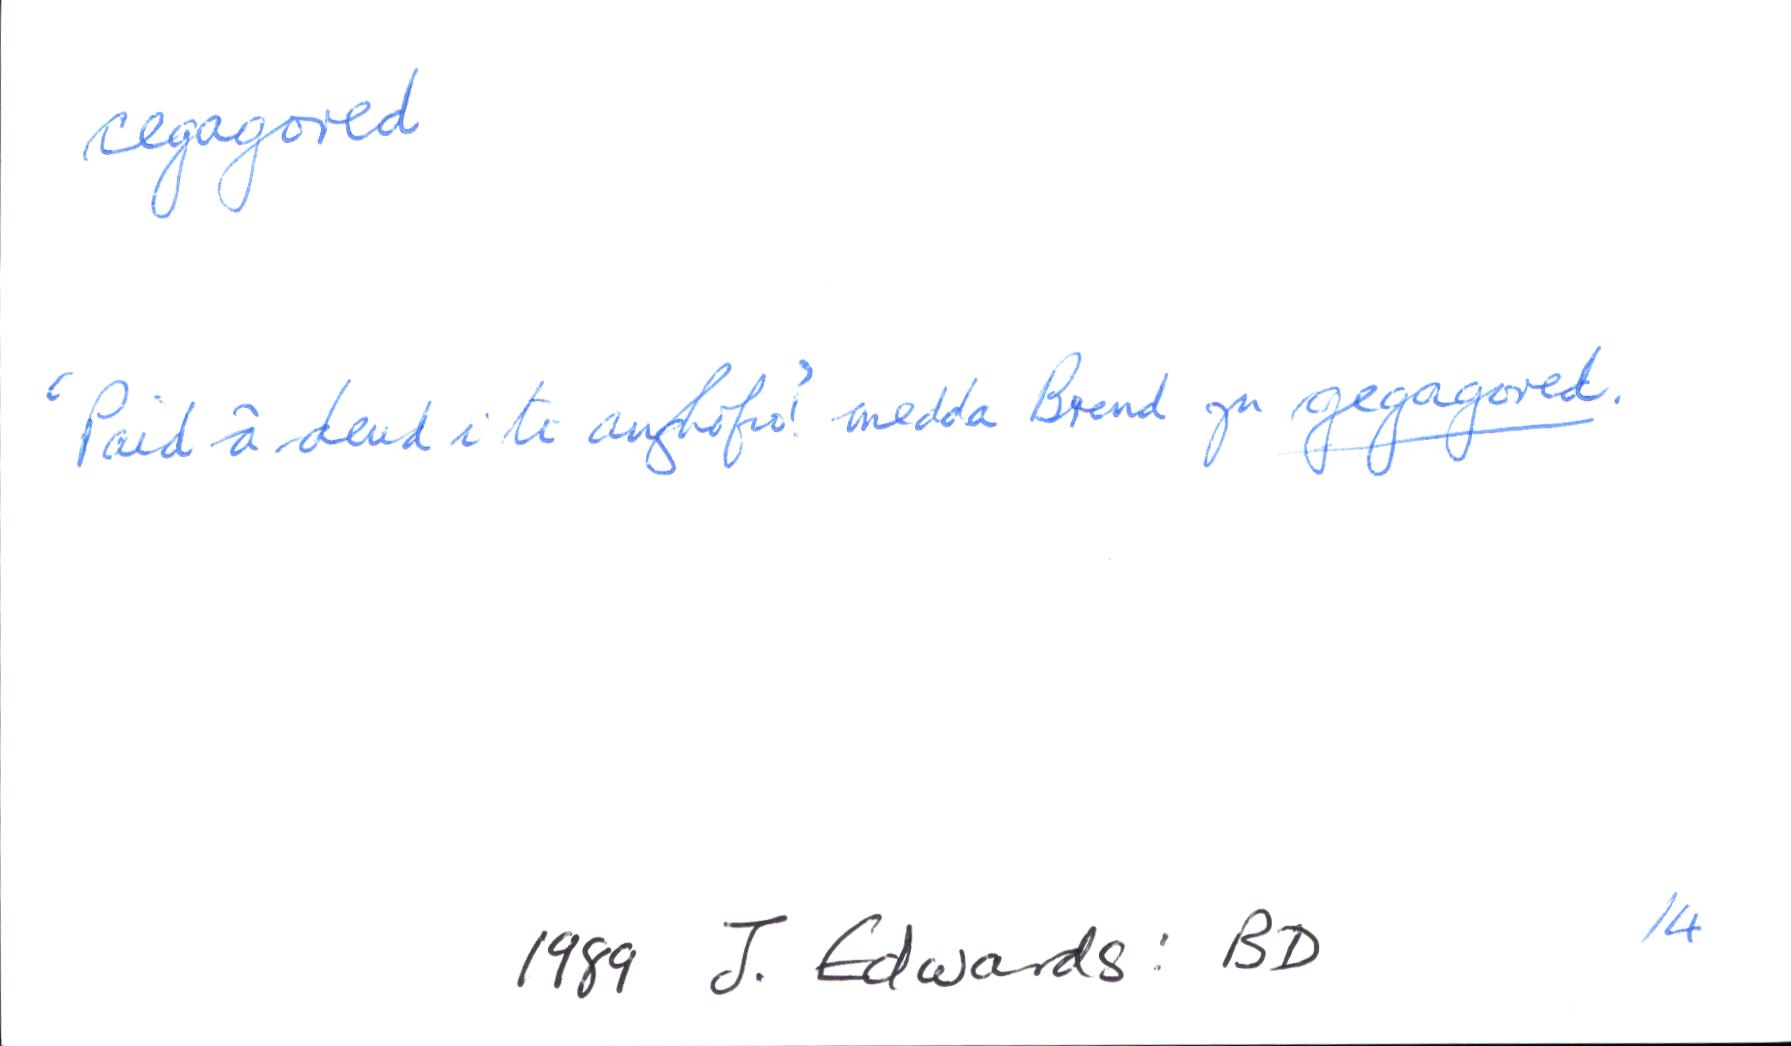 cegagored
'Paid â deud i ti anghofio!' medda Brend yn gegagored.
1989 J. Edwards: BD
14